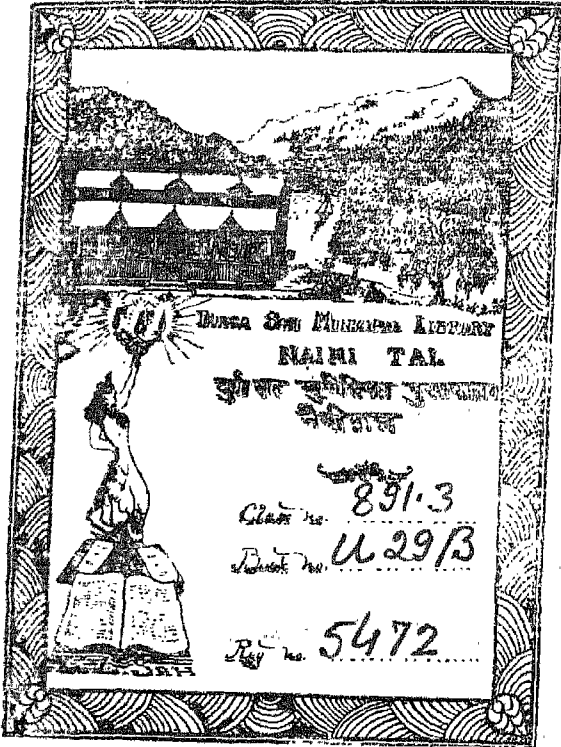 DURGA SAH MUNICIPAL LIBRARY
NAINI TAL
दुर्गा साह म्युनिसिपल पुस्तकालय
नैनीताल
Class no. 891.3
Book no. U 29/B
Reg no. 5472